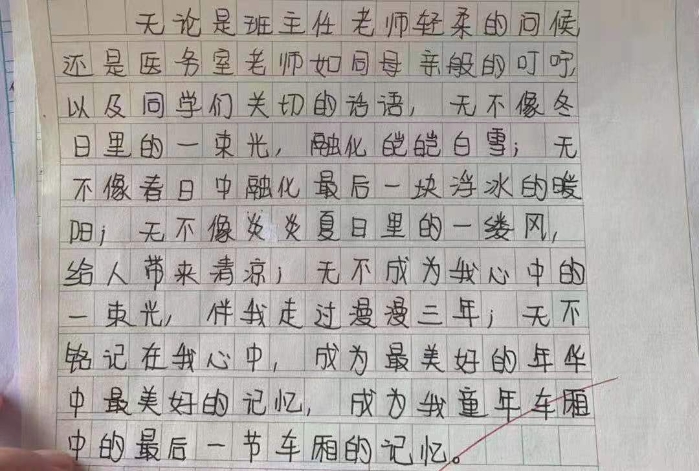 无论是班主任老师轻柔的问候
还是医务室老师如同母亲般的叮咛,
以及同学们关切的话语，无不像冬
日里的一束光，融化皑皑白雪；无
不像春日中融化最后一块浮冰的暖
阳；无不像炎炎夏日里的一缕风，
给人带来清凉；无不成为我心中的
一束光，伴我走过漫漫三年；无不
铭记在我心中，成为最美好的年华
中最美好的记忆，成为我童年车厢
中的最后一节车厢的记忆。